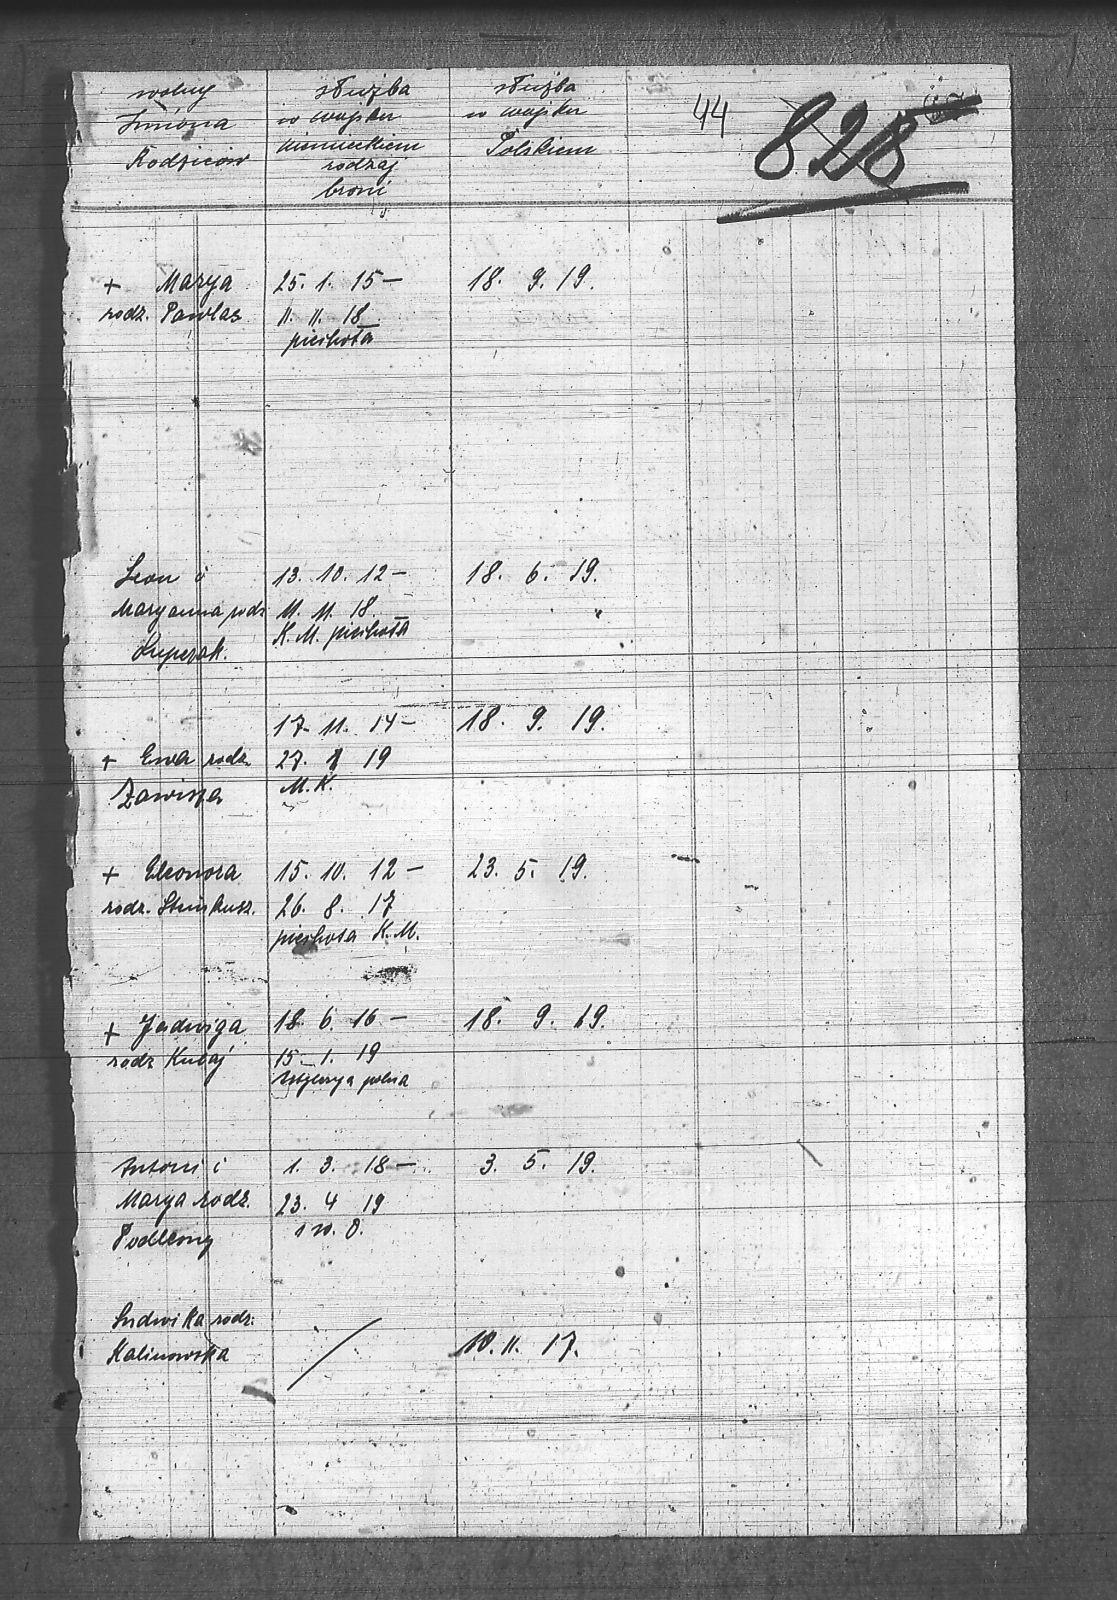 wolny służba służba 44 828
Imiona w wojsku w wojsku
Rodziców niemieckiem Polskiem
rodzaj
broni
+ Marya 25. 1. 15 — 18. 9. 19.
rodz. Pawlas 11. 11. 18
piechota
Leon i 13. 10. 12 — 18. 6. 19.
Maryanna rodz 11. 11. 18.
K. M. piechota
Superak.
17. 11. 14 — 18. 9. 19.
+ Ewa rodz. 27. 1 19
Zawisza M. K.
+ Eleonora 15. 10. 12 — 23. 5. 19.
rodz. 26. 8. 17
piechota K. M.
+ Jadwiga 18. 6. 16 — 18. 9. 19.
rodz Kubaj 15. 1. 19
polna
Antoni i 1. 3. 18 — 3. 5. 19.
Marya rodz. 23. 4 19
Ludwika rodz.
Kalinowska 10. 11. 17.